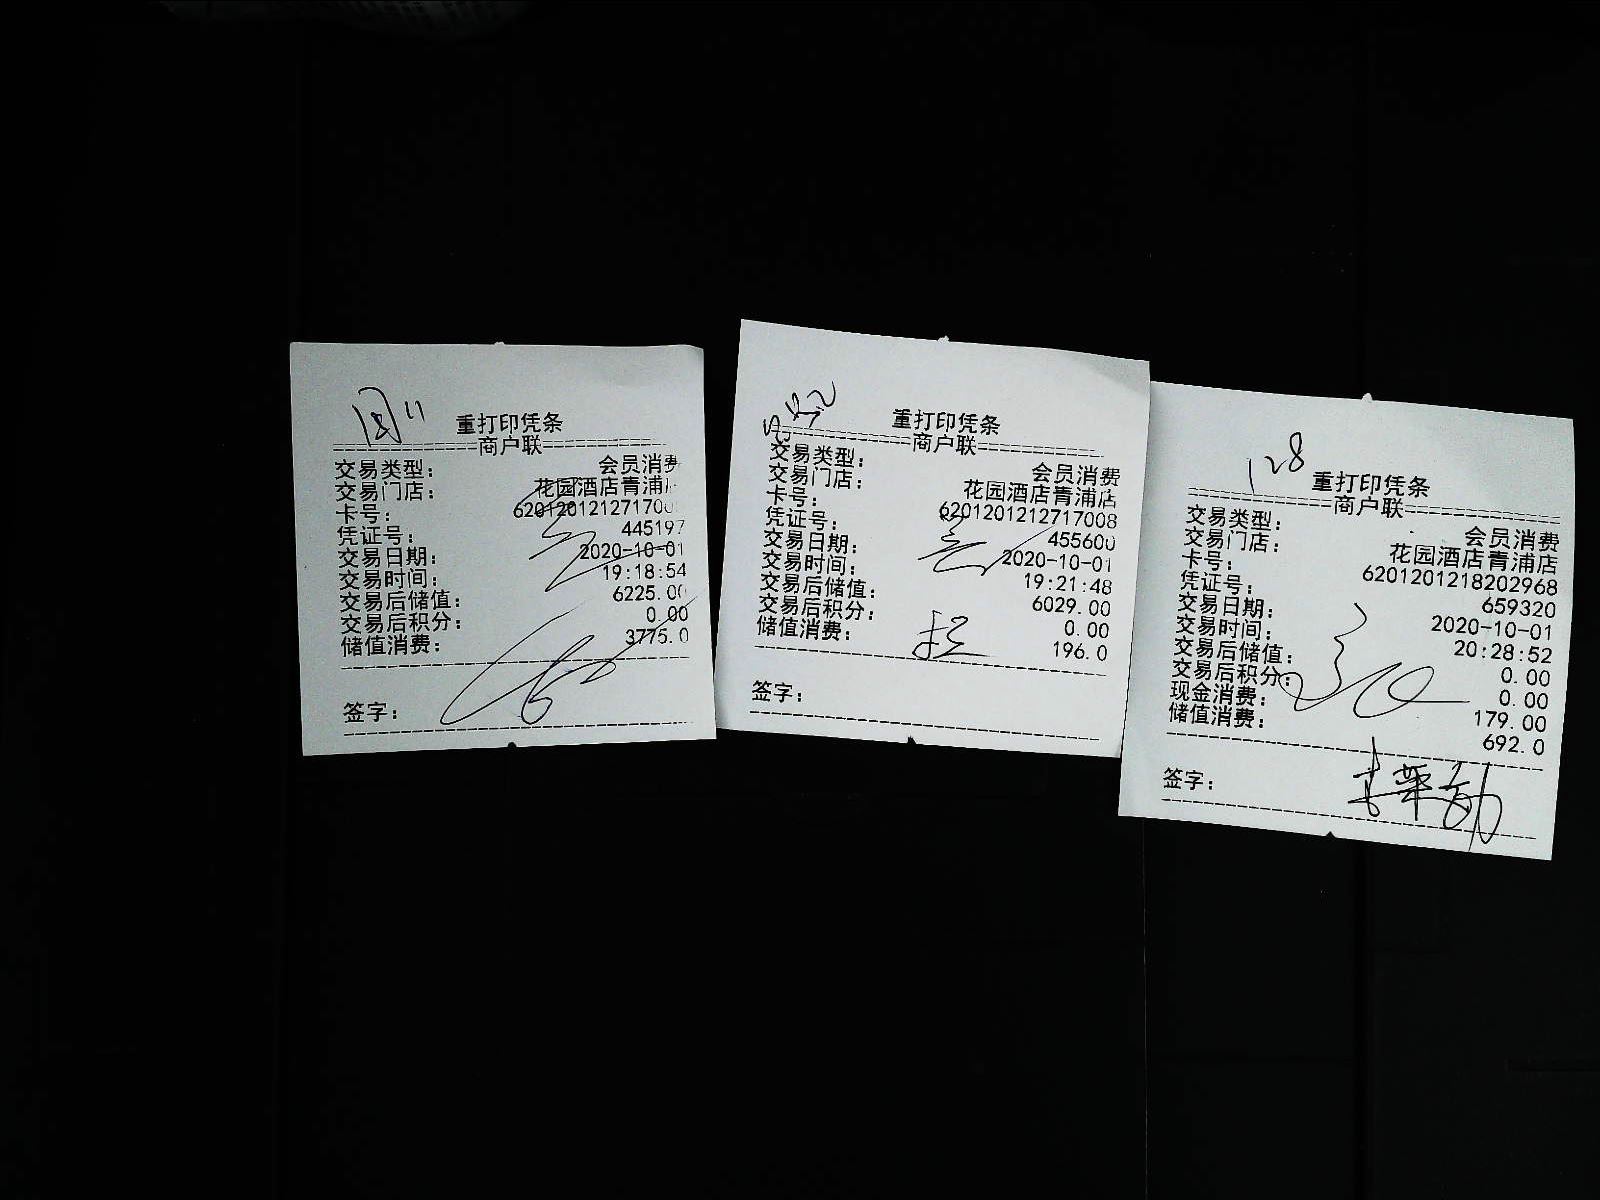 重打印凭条
商户联
交易类型： 会员消费
交易门店： 花园酒店青浦
卡号： 620120121271700
凭证号： 445197
交易日期： 2020-10-01
交易时间： 19:18:54
交易后储值： 6225.00
交易后积分： 0.00
储值消费： 3775.0
签字：
重打印凭条
商户联
交易类型： 会员消费
交易门店： 花园酒店青浦店
卡号： 6201201212717008
凭证号： 455600
交易日期： 2020-10-01
交易时间： 19:21:48
交易后储值： 6029.00
交易后积分： 0.00
储值消费： 196.0
签字：
128
重打印凭条
商户联
交易类型： 会员消费
交易门店： 花园酒店青浦店
卡号： 6201201218202968
凭证号： 659320
交易日期： 2020-10-01
交易时间： 20:28:52
交易后储值： 0.00
交易后积分： 0.00
现金消费： 179.00
储值消费： 692.0
签字：